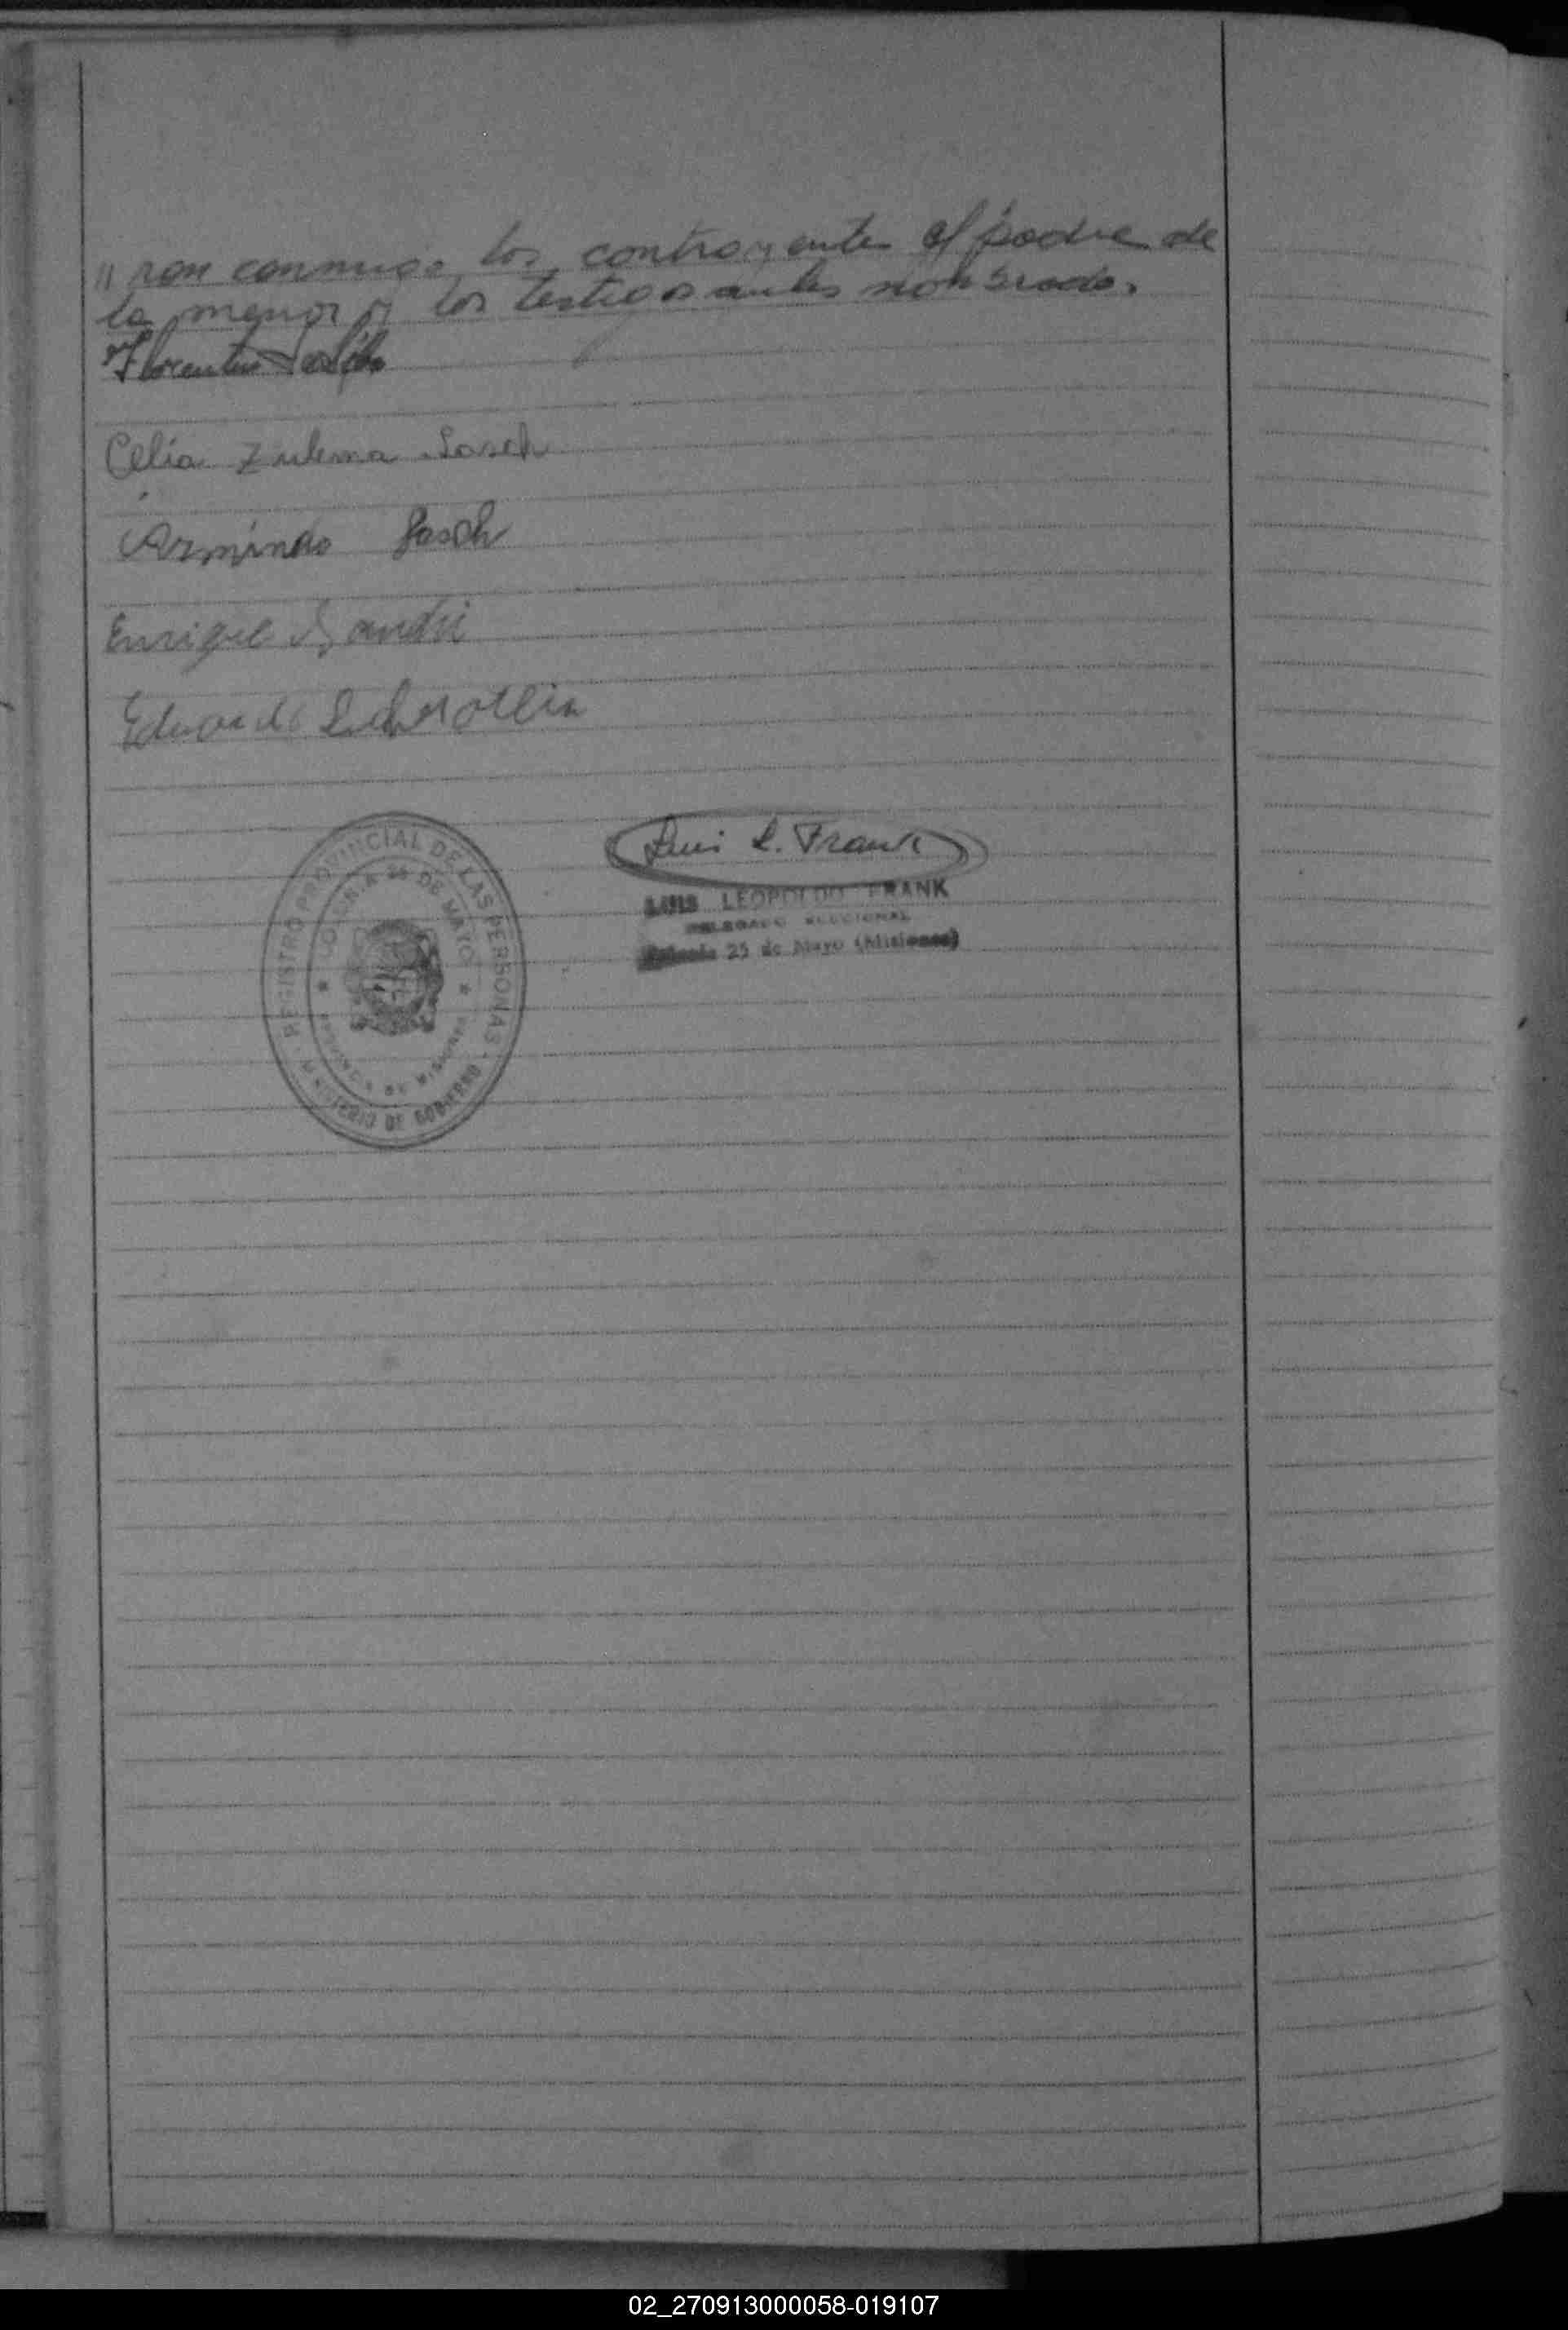 "ron conmigo los contrayentes el padre de
la menor y los testigos antes nombrados.
Florentin
Celia Zulema Sosch
Armindo Sosch
Enrique
Eduardo
REGISTRO PROVINCIAL DE LAS PERSONAS
MINISTERIO DE GOBIERNO
COLONIA 25 DE MAYO
PROVINCIA DE MISIONES
Luis L. Frank
LUIS LEOPOLDO FRANK
DELEGADO SECCIONAL
Colonia 25 de Mayo (Misiones)
02_270913000058-019107